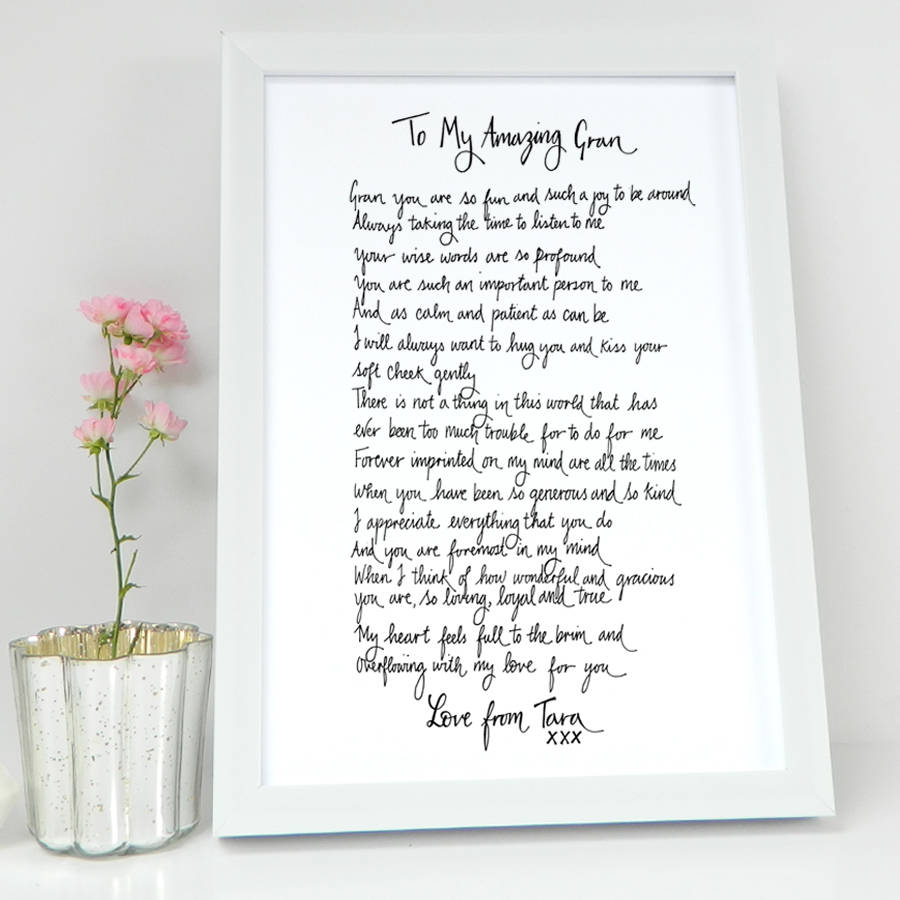 To My Amazing Gran
Gran you are so fun and such a joy to be around
Always taking the time to listen to me
Your wise words are so profound
You are such an important person to me
And as calm and patient as can be
I will always want to hug you and kiss your
soft cheek gently
There is not a thing in this world that has
ever been too much trouble for to do for me
Forever imprinted on my mind are all the times
When you have been so generous and so kind
I appreciate everything that you do
And you are foremost in my mind
When I think of how wonderful and gracious
you are, so loving, loyal and true
My heart feels full to the brim and
Overflowing with my love for you
Love from Tara
xxx